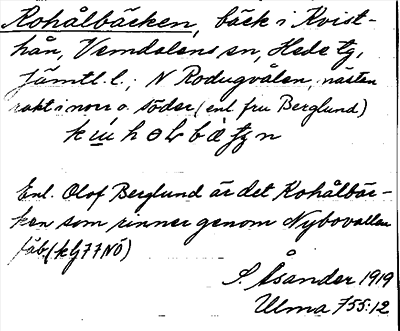 Kohålbäcken, bäck i Kvist-
hån, Vemdalens sn, Hede tg,
Jämtl. l.; N Rodugvålen, nästan
rakt i norr o. söder (enl fru Berglund)
Enl. Olof Berglund är det Kohålbäc-
ken som rinner genom Nybovallen
fäb. (kG77NÖ)
S. Åsander 1919
Ulma 755:12